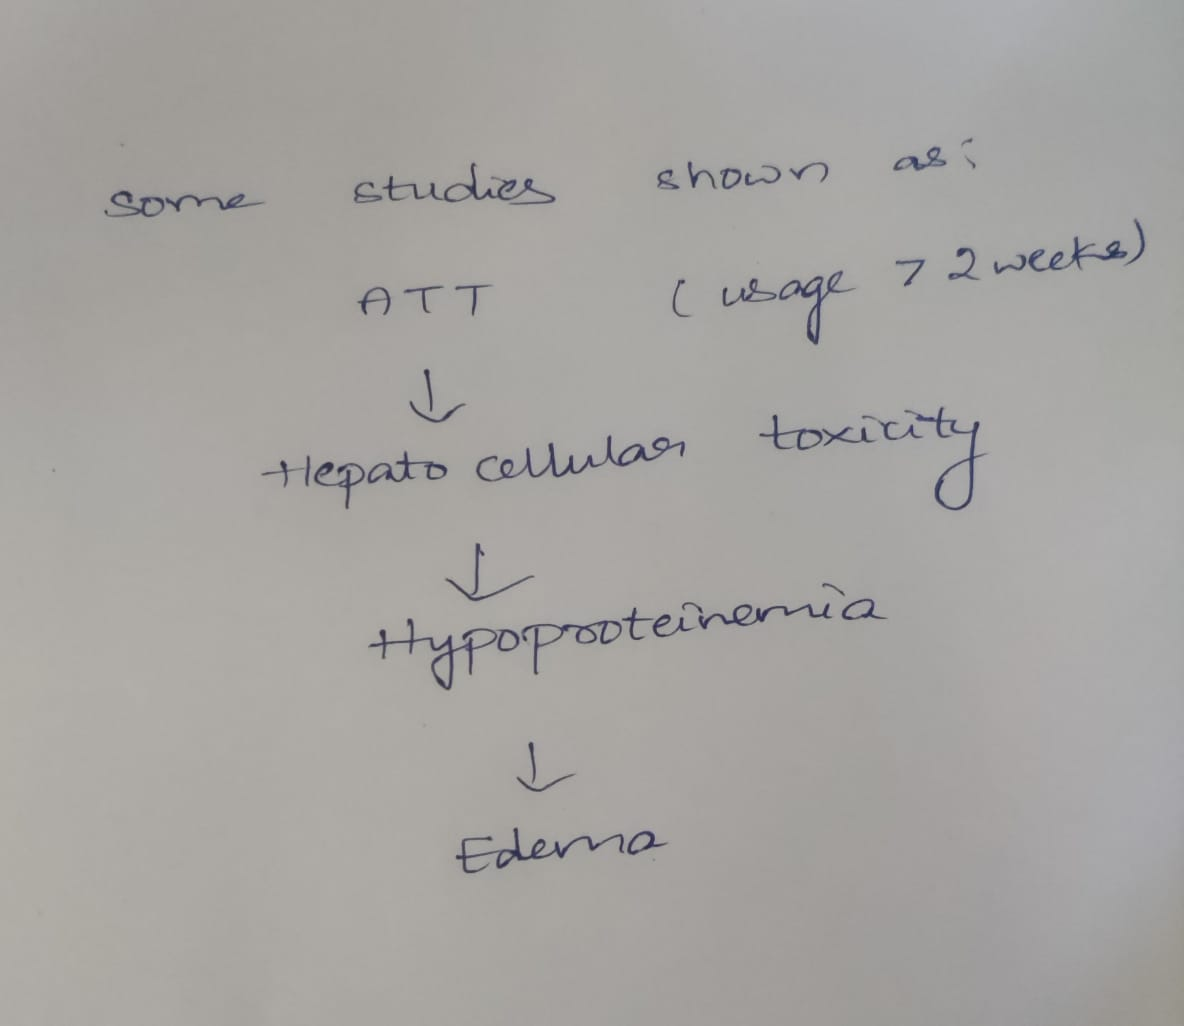 some studies shown as:
ATT (usage > 2 weeks)
↓
Hepato cellular toxicity
↓
Hypoproteinemia
↓
Edema